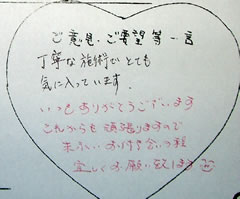 ご意見・ご要望等一言
丁寧な施術でとても
気に入っています。
いつもありがとうございます
これからも頑張りますので
末永いお付き合いの程
宜しくお願い致します